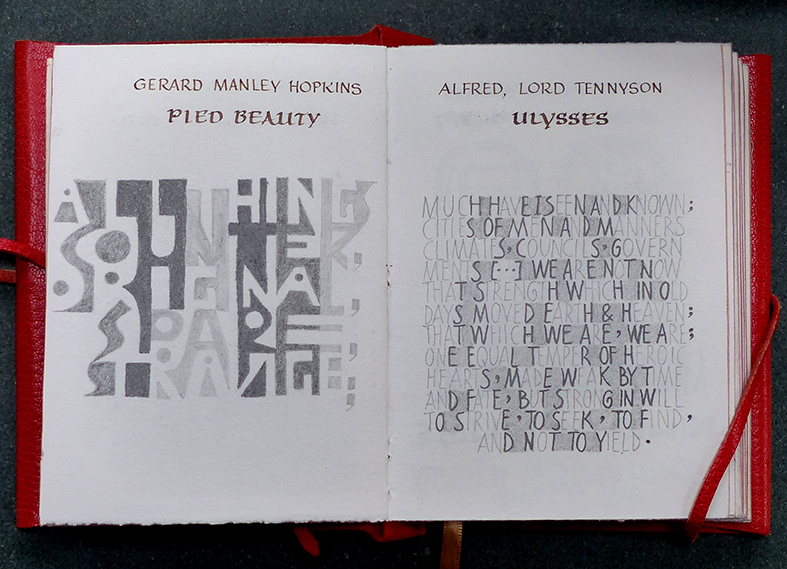 GERARD MANLEY HOPKINS
PIED BEAUTY
ALL THINGS
COUNTER,
ORIGINAL,
SPARE,
STRANGE;
ALFRED, LORD TENNYSON
ULYSSES
MUCH HAVE I SEEN AND KNOWN;
CITIES OF MEN AND MANNERS
CLIMATES, COUNCILS, GOVERN
MENTS [...] WE ARE NOT NOW
THAT STRENGTH WHICH IN OLD
DAYS MOVED EARTH & HEAVEN;
THAT WHICH WE ARE, WE ARE;
ONE EQUAL TEMPER OF HEROIC
HEARTS, MADE WEAK BY TIME
AND FATE, BUT STRONG IN WILL
TO STRIVE, TO SEEK, TO FIND,
AND NOT TO YIELD.